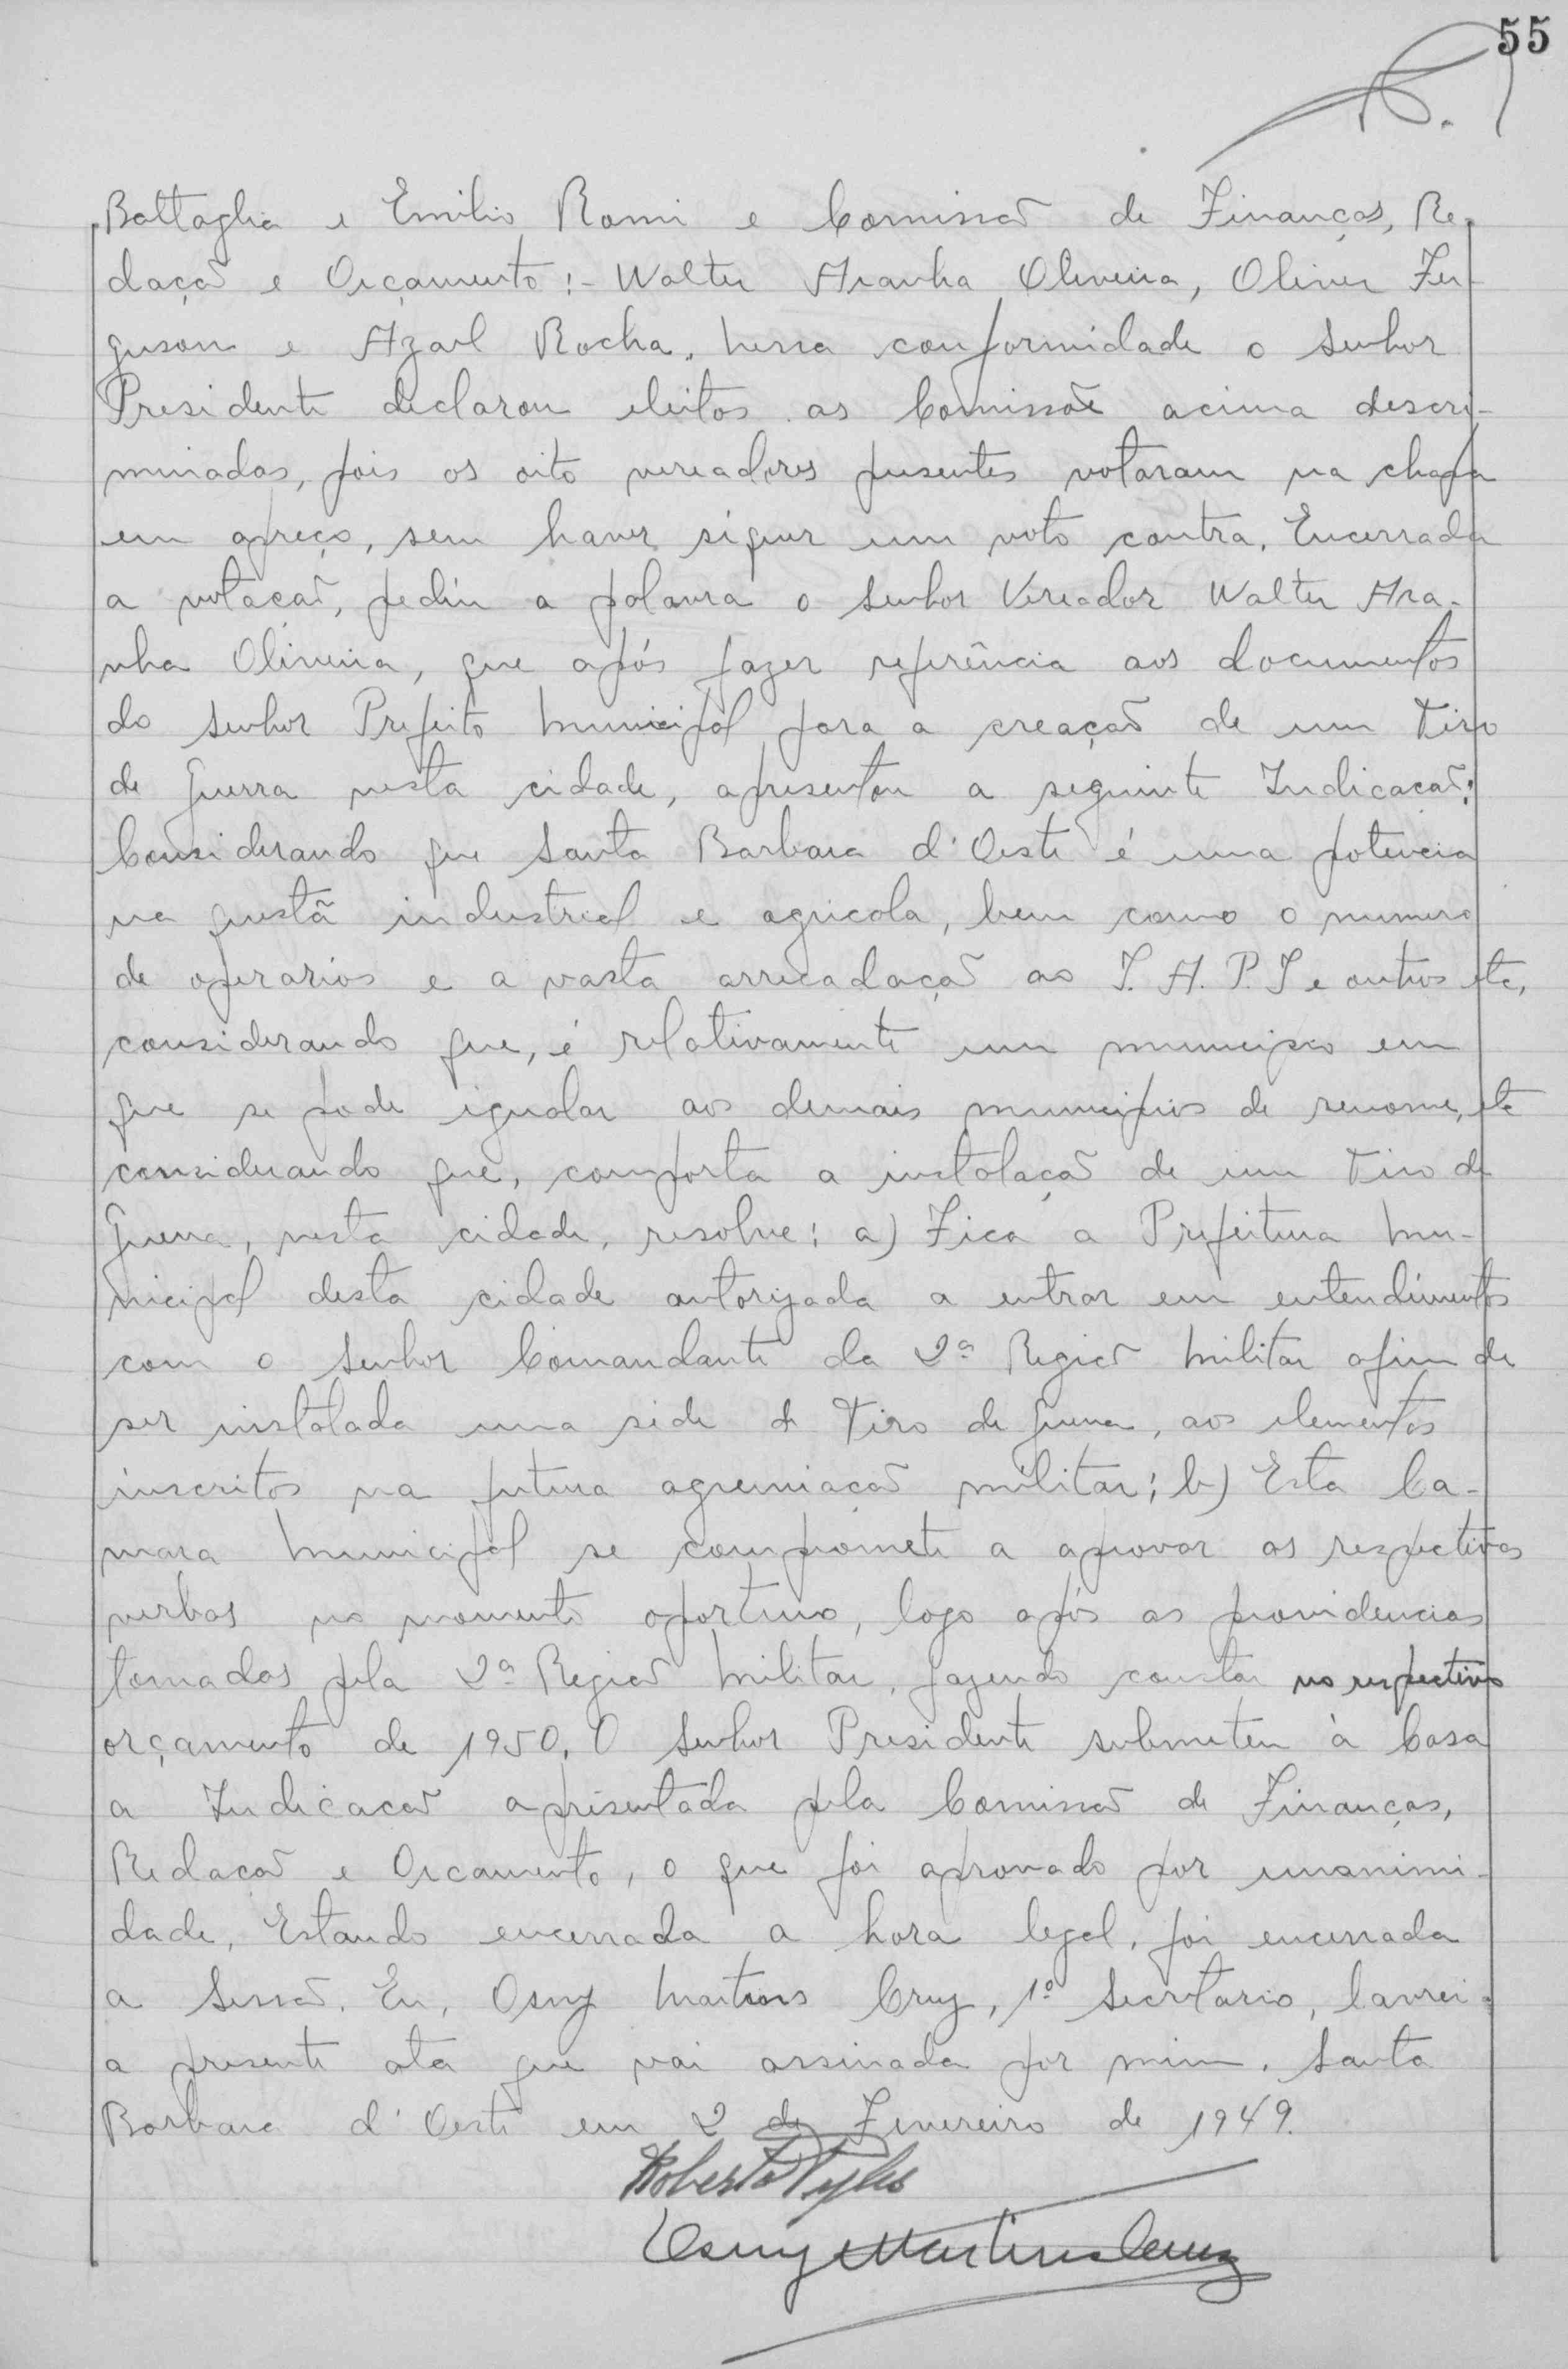 55
Battaglia e Emilio Romi e Comissão de Finanças, Re-
dação e Orçamento:- Walter Aranha Oliveira, Oliver Fer-
guson e Azael Rocha. Nessa conformidade o Senhor
Presidente declarou eleitos as Comissõe acima descri-
minadas, pois os oito vereadores presentes votaram na chapa
em apreço, sem haver siquer um voto contra. Encerrada
a votação, pediu a palavra o Senhor Vereador Walter Ara-
nha Oliveira, que após fazer referência aos documentos
do Senhor Prefeito Municipal para a creação de um Tiro
de Guerra nesta cidade, apresentou a seguinte Indicacão:
Considerando que Santa Barbara d'Oeste é uma potencia
na questã industrial e agricola, bem como o numero
de operarios e a vasta arrecadação ao I. A. P. I e outros etc,
considerando que, é relativamente um municipio em
que se pode igualar aos demais municipios de renome, etc
considerando que, comporta a instalação de um Tiro de
Guerra, nesta cidade, resolve: a) Fica a Prefeitura Mu-
nicipal desta cidade autorizada a entrar em entendimentos
com o Senhor Comandante da 2ª Região Militar afim de
ser instalada uma séde de Tiro de Guerra, aos elementos
inscritos na futura agremiação militar; b) Esta Ca-
mara Municipal se compromete a aprovar as respectivas
verbas no momento oportuno, logo após as providencias
tomadas pela 2ª Região Militar, fazendo constar no respectivo
orçamento de 1950. O Senhor Presidente submeteu à Casa
a Indicacão apresentada pela Comissão de Finanças,
Redacão e Orcamento, o que foi aprovado por unanimi-
dade. Estando encerrada a hora legal, foi encerrada
a Sessão. Eu, Osny Martins Cruz, 1º Secretario, lavrei
a presente ata que vai assinada por mim. Santa
Barbara d'Oeste em 2 de Fevereiro de 1949.
Roberto Pyles
Osny Martins Cruz